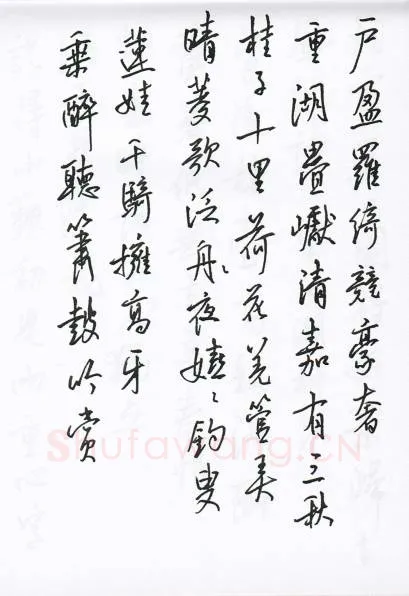 户盈羅綺競豪奢
重湖疊巘清嘉有三秋
桂子十里荷花羌管弄
晴菱歌泛舟夜嬉〻釣叟
蓮娃千騎擁高牙
乘醉聽簫鼓吟賞
Shufawang.CN